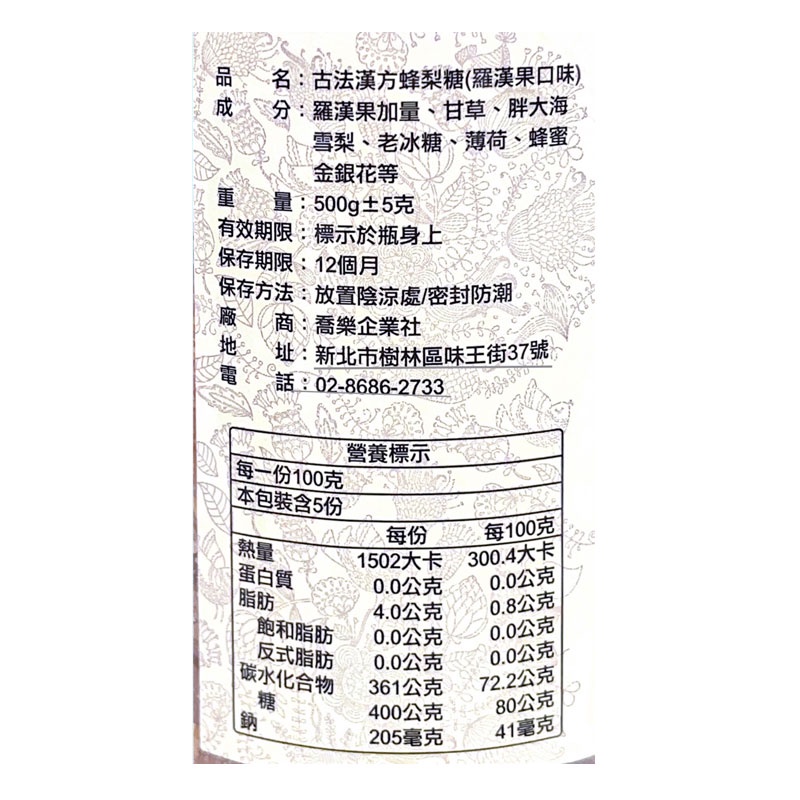 品名：古法漢方蜂梨糖(羅漢果口味)
成分：羅漢果加量、甘草、胖大海
雪梨、老冰糖、薄荷、蜂蜜
金銀花等
重量：500g±5克
有效期限：標示於瓶身上
保存期限：12個月
保存方法：放置陰涼處/密封防潮
廠商：喬樂企業社
地址：新北市樹林區味王街37號
電話：02-8686-2733
營養標示
每一份100克
本包裝含5份
每份 每100克
熱量 1502大卡 300.4大卡
蛋白質 0.0公克 0.0公克
脂肪 4.0公克 0.8公克
飽和脂肪 0.0公克 0.0公克
反式脂肪 0.0公克 0.0公克
碳水化合物 361公克 72.2公克
糖 400公克 80公克
鈉 205毫克 41毫克